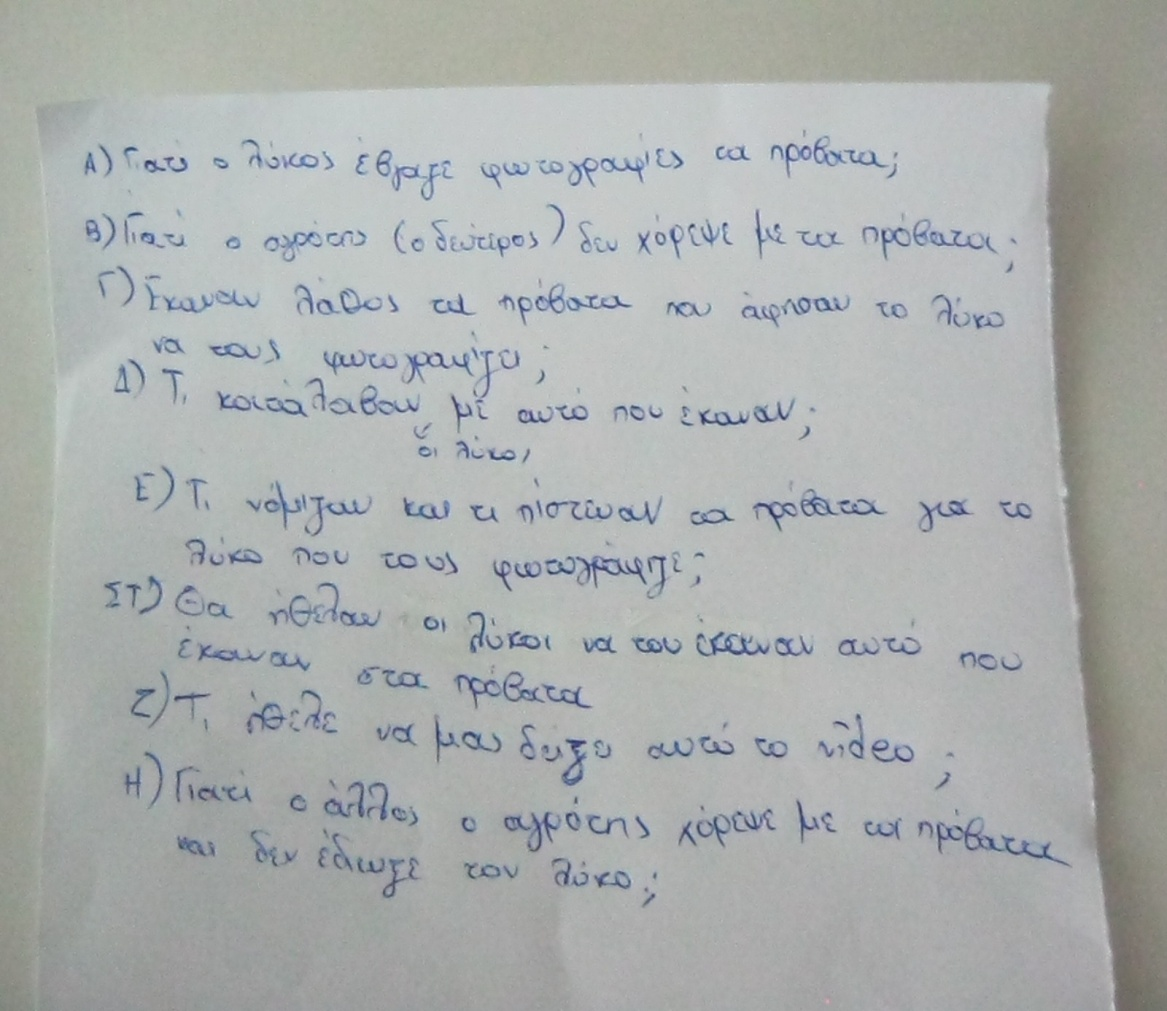 Α) Γιατί ο λύκος έβγαζε φωτογραφίες τα πρόβατα;
Β) Γιατί ο αγρότης (ο δεύτερος) δεν χόρεψε με τα πρόβατα;
Γ) Έκαναν λάθος τα πρόβατα που άφησαν το λύκο
να τους φωτογραφίζει;
Δ) Τι κατάλαβαν με αυτό που έκαναν;
οι λύκοι
Ε) Τι νόμιζαν και τι πίστευαν τα πρόβατα για το
λύκο που τους φωτογράφιζε;
ΣΤ) Θα ήθελαν οι λύκοι να του έκαναν αυτό που
έκαναν στα πρόβατα
Ζ) Τι ήθελε να μας δείξει αυτό το video;
Η) Γιατί ο άλλος ο αγρότης χόρεψε με τα πρόβατα
και δεν έδιωξε τον λύκο;